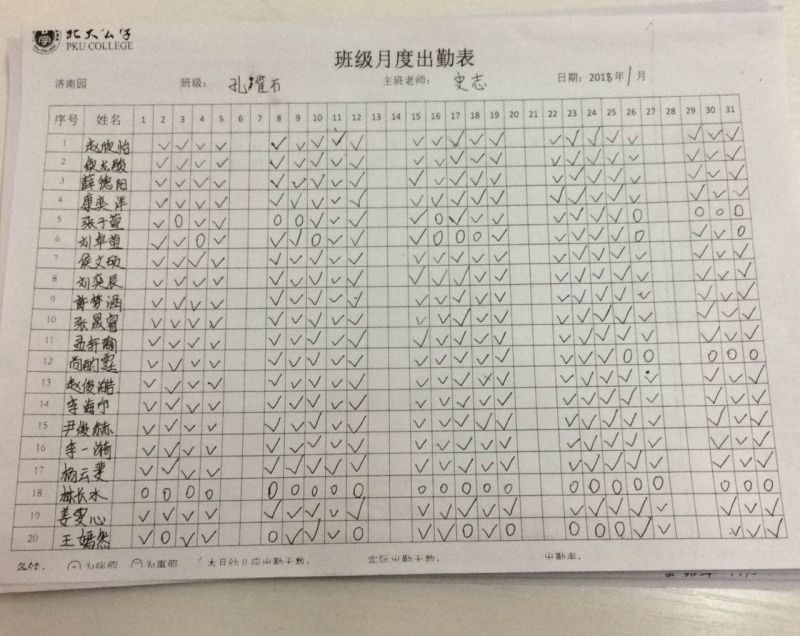 北大公学
PKU COLLEGE
班级月度出勤表
济南园 班级: 主班老师: 史志 日期: 2018年1月
序号 姓名 1 2 3 4 5 6 7 8 9 10 11 12 13 14 15 16 17 18 19 20 21 22 23 24 25 26 27 28 29 30 31
1 赵欣怡 ✓ ✓ ✓ ✓ ✓ ✓ ✓ ✓ ✓ ✓ ✓ ✓ ✓ ✓ ✓ ✓ ✓ ✓ ✓ ✓ ✓ ✓
2 ✓ ✓ ✓ ✓ ✓ ✓ ✓ ✓ ✓ ✓ ✓ ✓ ✓ ✓ ✓ ✓ ✓ ✓ ✓ ✓ ✓ ✓
3 薛德阳 ✓ ✓ ✓ ✓ ✓ ✓ ✓ ✓ ✓ ✓ ✓ ✓ ✓ ✓ ✓ ✓ ✓ ✓ ✓ ✓ ✓ ✓
4 ✓ ✓ ✓ ✓ ✓ ✓ ✓ ✓ ✓ ✓ ✓ ✓ ✓ ✓ ✓ ✓ ✓ ✓ ✓ ✓ ✓ ✓
5 张子萱 ✓ O ✓ ✓ O O ✓ ✓ ✓ ✓ O ✓ ✓ ✓ ✓ ✓ ✓ ✓ O O O O
6 刘卓萱 ✓ ✓ O ✓ ✓ ✓ O ✓ ✓ ✓ O O O ✓ ✓ ✓ ✓ ✓ O ✓ ✓ O
7 侯文硕 ✓ ✓ ✓ ✓ ✓ ✓ ✓ ✓ ✓ ✓ ✓ ✓ ✓ ✓ ✓ ✓ ✓ ✓ ✓ ✓ ✓ ✓
8 刘奕辰 ✓ ✓ ✓ ✓ ✓ ✓ ✓ ✓ ✓ ✓ ✓ ✓ ✓ ✓ ✓ ✓ ✓ ✓ ✓ ✓ ✓ ✓
9 许梦涵 ✓ ✓ ✓ ✓ ✓ ✓ ✓ ✓ ✓ ✓ ✓ ✓ ✓ ✓ ✓ ✓ ✓ ✓ ✓ ✓ ✓ ✓
10 张晟睿 ✓ ✓ ✓ ✓ ✓ ✓ ✓ ✓ ✓ ✓ ✓ ✓ ✓ ✓ ✓ ✓ ✓ ✓ ✓ ✓ ✓ ✓
11 ✓ ✓ ✓ ✓ ✓ ✓ ✓ ✓ ✓ ✓ ✓ ✓ ✓ ✓ ✓ ✓ ✓ ✓ ✓ ✓ ✓ ✓
12 ✓ ✓ ✓ ✓ ✓ ✓ ✓ ✓ ✓ ✓ ✓ ✓ ✓ ✓ ✓ ✓ ✓ O O O O O
13 赵俊皓 ✓ ✓ ✓ ✓ ✓ ✓ ✓ ✓ ✓ ✓ ✓ ✓ ✓ ✓ ✓ ✓ ✓ ✓ ✓ ✓ ✓
14 李海宁 ✓ ✓ ✓ ✓ ✓ ✓ ✓ ✓ ✓ ✓ ✓ ✓ ✓ ✓ ✓ ✓ ✓ ✓ ✓ ✓ ✓ ✓
15 尹俊赫 ✓ ✓ ✓ ✓ ✓ ✓ ✓ ✓ ✓ ✓ ✓ ✓ ✓ ✓ ✓ ✓ ✓ ✓ ✓ ✓ ✓ ✓
16 李一漪 ✓ ✓ ✓ ✓ ✓ ✓ ✓ ✓ ✓ ✓ ✓ ✓ ✓ ✓ ✓ ✓ ✓ ✓ ✓ ✓ ✓ ✓
17 杨云雯 ✓ ✓ ✓ ✓ ✓ ✓ ✓ ✓ ✓ ✓ ✓ ✓ ✓ ✓ ✓ ✓ ✓ ✓ ✓ ✓ ✓ ✓
18 林长水 O O O O O O O O O O O O O O O O O O O O O O
19 姜雯心 ✓ ✓ ✓ ✓ ✓ ✓ ✓ ✓ ✓ ✓ ✓ ✓ ✓ ✓ ✓ ✓ ✓ ✓ ✓ ✓ ✓ ✓
20 王嫣然 ✓ O ✓ ✓ O ✓ ✓ ✓ O ✓ ✓ O ✓ O O O O ✓ ✓ ✓ ✓ ✓
为病假 为事假 本月幼儿应出勤天数: 实际出勤天数: 出勤率: